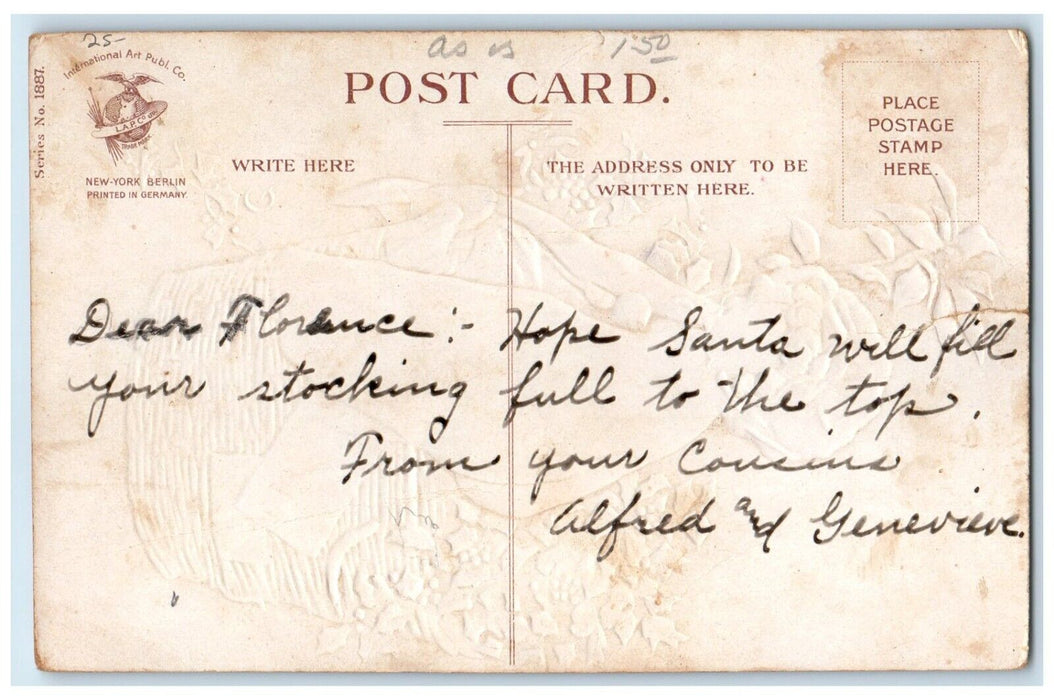 25-
as is 1.50
International Art Publ. Co.
I.A.P.Co.
TRADE MARK
NEW-YORK BERLIN
PRINTED IN GERMANY.
Series No. 1887.
POST CARD.
WRITE HERE
THE ADDRESS ONLY TO BE
WRITTEN HERE.
PLACE
POSTAGE
STAMP
HERE.
Dear Florence :- Hope Santa will fill
your stocking full to the top.
From your Cousins
Alfred and Genevieve.